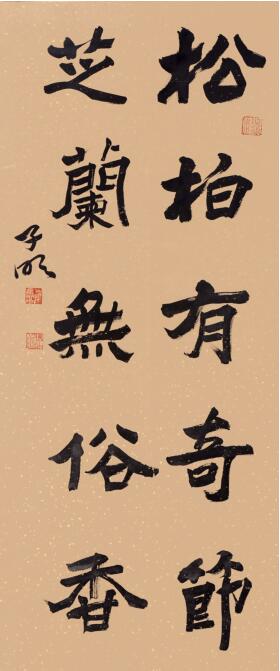 松柏有奇節
芝蘭無俗香
子明